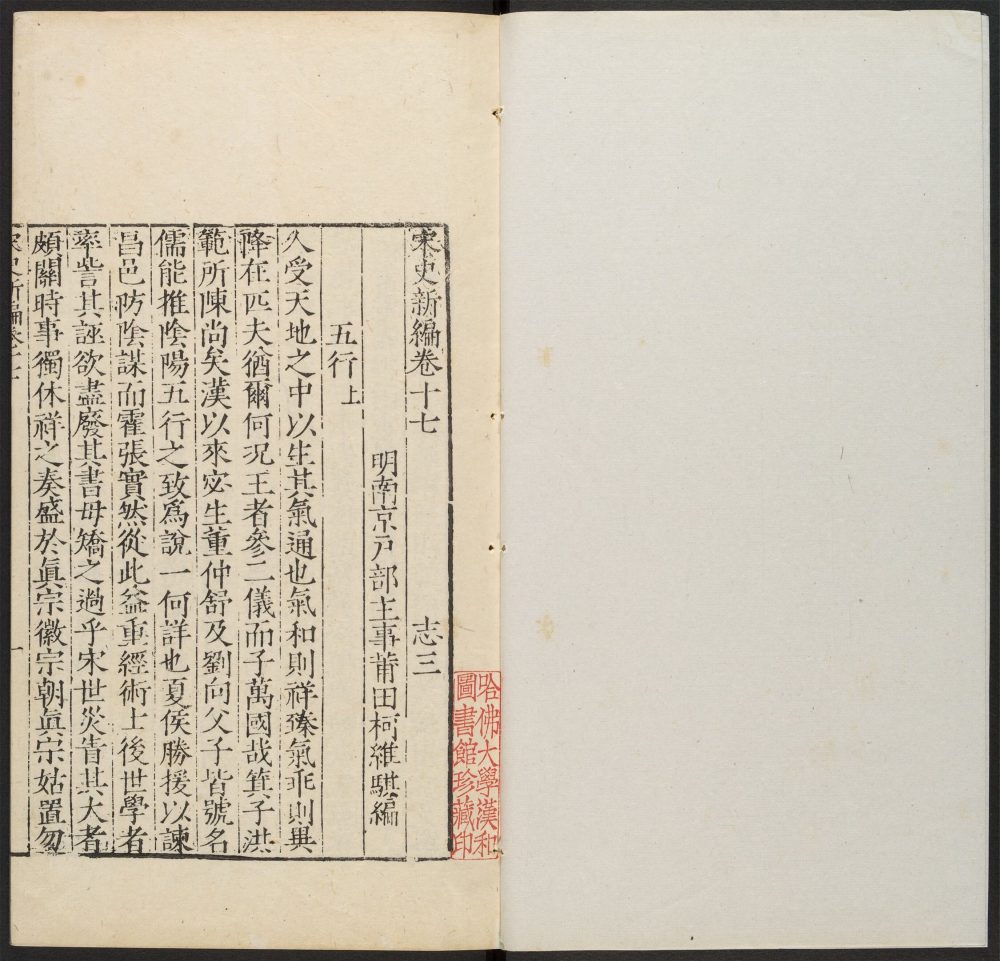 宋史新編卷十七 志三
明南京戸部主事莆田柯維騏編
五行上
久受天地之中以生其氣通也氣和則祥臻氣乖則異
降在匹夫猶爾何況王者參二儀而子萬國哉箕子洪
範所陳尚矣漢以來宓生董仲舒及劉向父子皆號名
儒能推陰陽五行之致為說一何詳也夏侯勝援以諫
昌邑防陰謀而霍張實然從此益重經術士後世學者
率訾其誣欲盡廢其書毋矯之過乎宋世災眚其大者
頗關時事獨休祥之奏盛於眞宗徽宗朝眞宗姑置勿
宋史新編卷十七 一
哈佛大學漢和
圖書館珍藏印